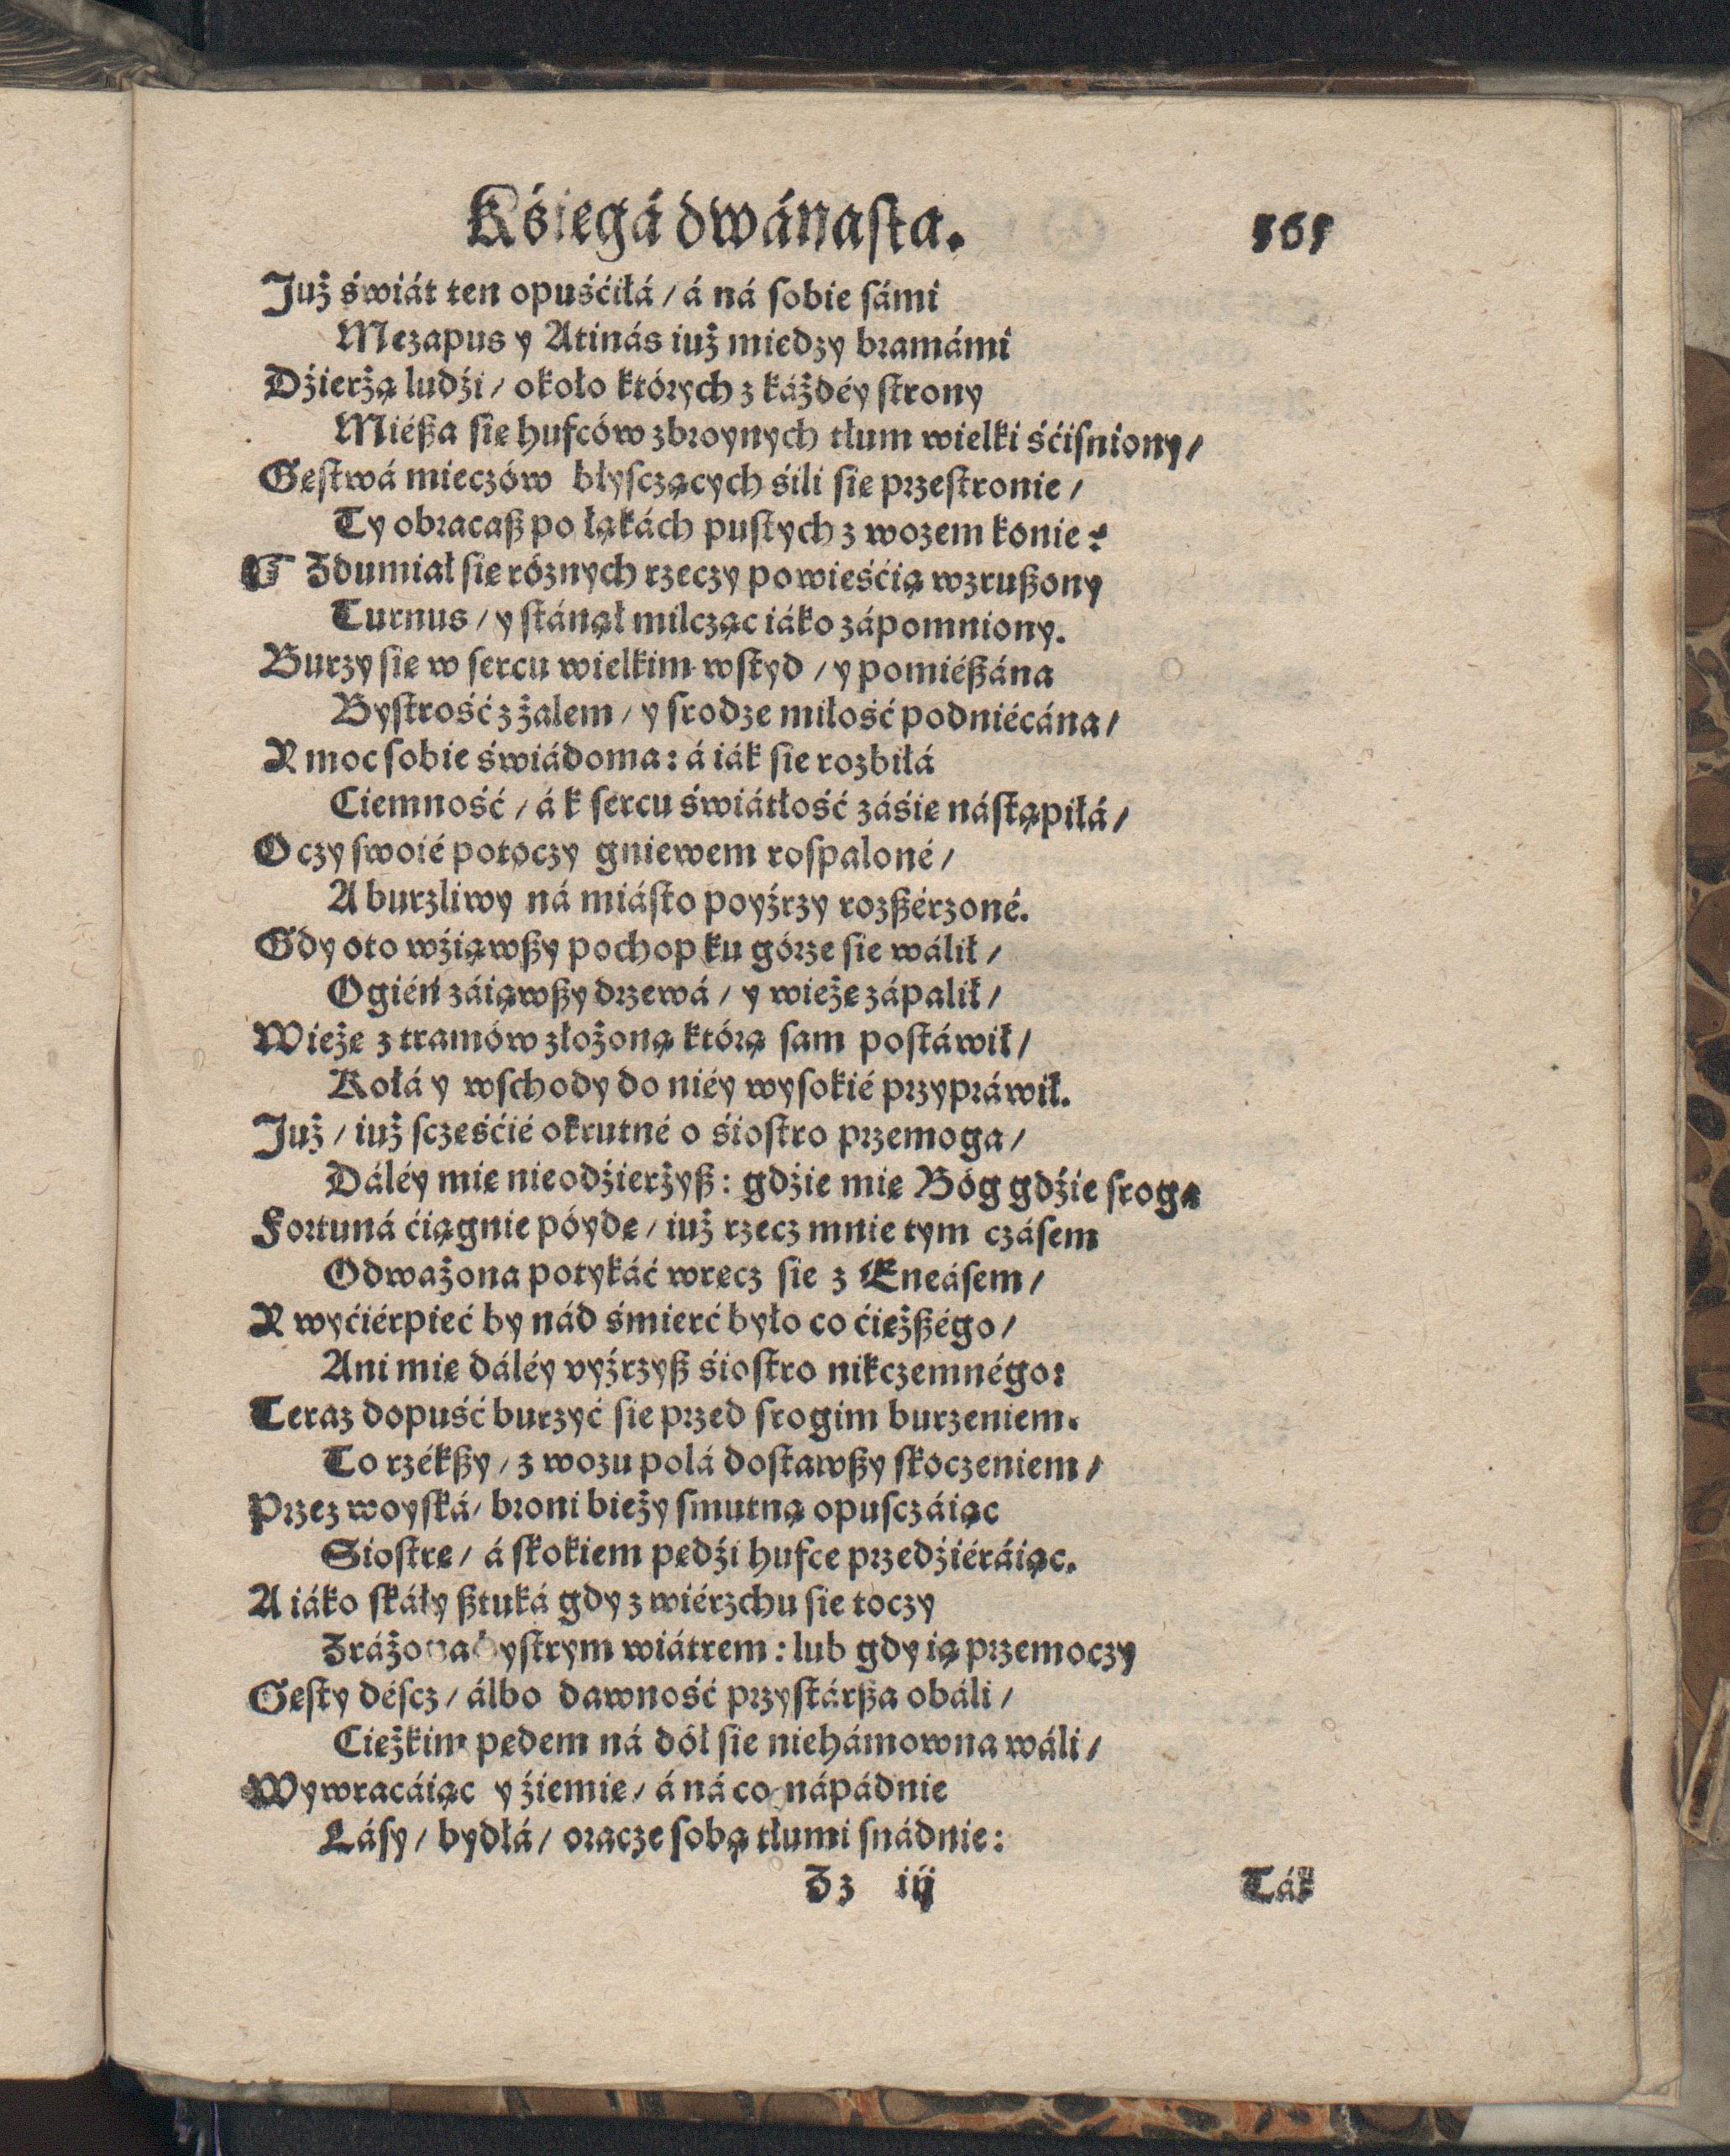 Kśięgá dwánaſta. 361
Już świát ten opuśćiłá / á ná ſobie ſámi
Mezapus y Atinás iuż miedzy bramámi
Dźierżą ludźi / około których z káżdéy ſtrony
Miéßa ſię hufców zbroynych tłum wielki śćiſniony /
Gęſtwá mieczów błyſczących śili ſię przeſtronie /
Ty obracaß po łąkách puſtych z wozem konie?
☞ Zdumiał ſię róznych rzeczy powieśćią wzrußony
Turnus / y ſtánął milcząc iáko zápomniony.
Burzy ſię w ſercu wielkim wſtyd / y pomiéßána
Byſtrość z żalem / y ſrodze miłość podniécána /
Y moc ſobie świádoma: á iák ſie rozbiłá
Ciemność / á k ſercu świátłość záśię náſtąpiłá /
Oczy ſwoié potoczy gniewem roſpaloné /
A burzliwy ná miáſto poyźrzy rozßérzoné.
Gdy oto wźiąwßy pochop ku górze ſie wálił /
Ogień záiąwßy drzewá / y wieżę zápalił /
Wieżę z tramów złożoną którą ſam poſtáwił /
Kołá y wſchody do niéy wyſokié przypráwił.
Już / iuż ſczęśćié okrutné o śioſtro przemoga /
Dáléy mię nieodźierżyß: gdźie mię Bóg gdźie ſroga
Fortuná ćiągnie póydę / iuż rzecz mnie tym czáſem
Odważona potykáć wręcz ſie z Eneáſem /
Y wyćiérpieć by nád śmierć było co ćięższégo /
Ani mię dáléy vyźrzyß śioſtro nikczemnégo:
Teraz dopuść burzyć ſie przed ſrogim burzeniem.
To rzékßy / z wozu polá doſtawßy ſkoczeniem /
Przez woyſká / broni bieży ſmutną opuſczáiąc
Sioſtrę / á ſkokiem pędźi hufce przedźiéráiąc.
A iáko ſkáły ßtuká gdy z wiérzchu ſie toczy
Zrážona byſtrym wiátrem: lub gdy ią przemoczy
Gęſty déſcz / álbo dawność przyſtárßa obáli /
Ciężkim pędem ná dół ſie niehámowna wáli /
Wywracáiąc y źiemię / á ná co nápádnie
Láſy / bydłá / oracze ſobą tłumi ſnádnie:
Zz iij Ták